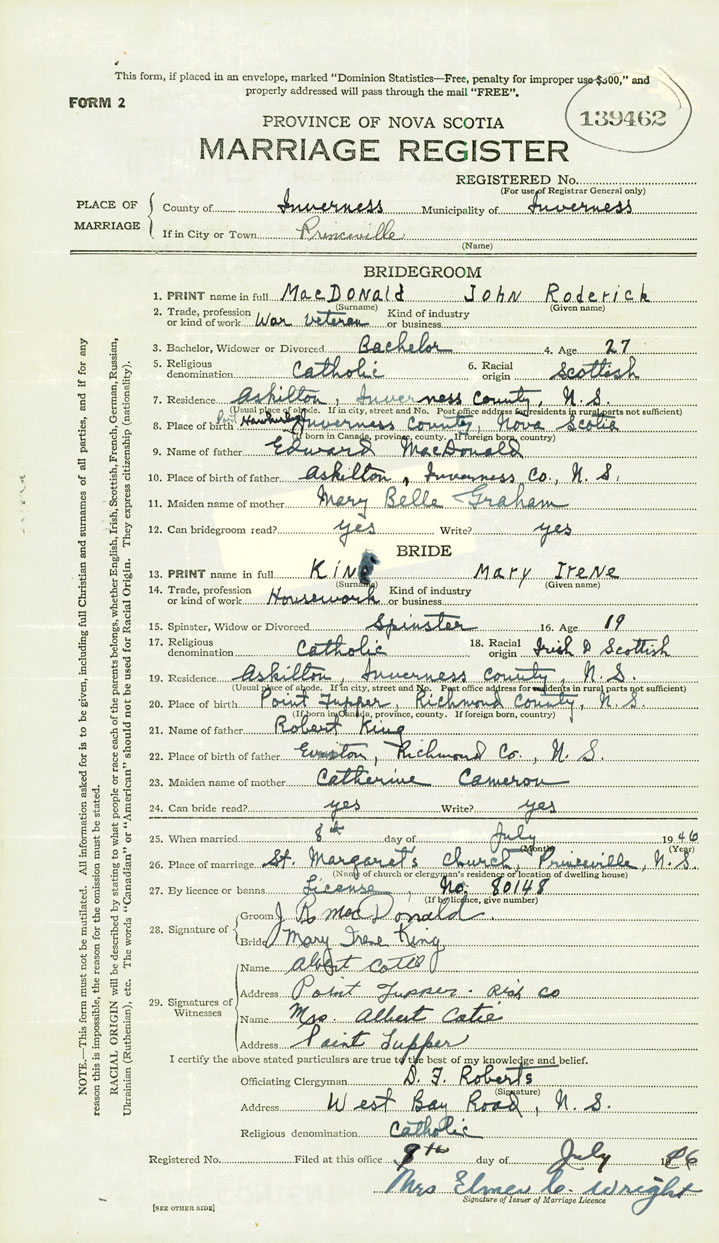 This form, if placed in an envelope, marked "Dominion Statistics—Free, penalty for improper use $300," and
properly addressed will pass through the mail "FREE".
FORM 2
139462
PROVINCE OF NOVA SCOTIA
MARRIAGE REGISTER
REGISTERED No.
(For use of Registrar General only)
PLACE OF MARRIAGE
County of Inverness Municipality of Inverness
If in City or Town Princeville
(Name)
BRIDEGROOM
1. PRINT name in full MacDonald John Roderick
(Surname) (Given name)
2. Trade, profession or kind of work War Veteran Kind of industry or business
3. Bachelor, Widower or Divorced Bachelor 4. Age 27
5. Religious denomination Catholic 6. Racial origin Scottish
7. Residence Askilton, Inverness County, N. S.
(Usual place of abode. If in city, street and No. Post office address for residents in rural parts not sufficient)
8. Place of birth Port Hawkesbury Inverness County, Nova Scotia
(If born in Canada, province, county. If foreign born, country)
9. Name of father Edward MacDonald
10. Place of birth of father Askilton, Inverness Co., N. S.
11. Maiden name of mother Mary Belle Graham
12. Can bridegroom read? yes Write? yes
BRIDE
13. PRINT name in full King Mary Irene
(Surname) (Given name)
14. Trade, profession or kind of work Housework Kind of industry or business
15. Spinster, Widow or Divorced Spinster 16. Age 19
17. Religious denomination Catholic 18. Racial origin Irish & Scottish
19. Residence Askilton, Inverness County, N. S.
(Usual place of abode. If in city, street and No. Post office address for residents in rural parts not sufficient)
20. Place of birth Point Tupper, Richmond County, N. S.
(If born in Canada, province, county. If foreign born, country)
21. Name of father Robert King
22. Place of birth of father Evanston, Richmond Co., N. S.
23. Maiden name of mother Catherine Cameron
24. Can bride read? yes Write? yes
25. When married 8th day of July 1946
(Month) (Year)
26. Place of marriage St. Margaret's Church Princeville, N. S.
(Name of church or clergyman's residence or location of dwelling house)
27. By licence or banns License, No. 80148
(If by licence, give number)
28. Signature of
Groom J R MacDonald.
Bride Mary Irene King
29. Signatures of Witnesses
Name Albert Catie
Address Point Tupper - Rich Co
Name Mrs. Albert Catie
Address Point Tupper
I certify the above stated particulars are true to the best of my knowledge and belief.
Officiating Clergyman D. F. Roberts
(Signature)
Address West Bay Road, N. S.
Religious denomination Catholic
Registered No. Filed at this office day of July 1946
Mrs Elmer C. Wright
Signature of Issuer of Marriage Licence
[SEE OTHER SIDE]
NOTE.—This form must not be mutilated. All information asked for is to be given, including full Christian and surnames of all parties, and if for any
reason this is impossible, the reason for the omission must be stated.
RACIAL ORIGIN will be described by stating to what people or race each of the parents belongs, whether English, Irish, Scottish, French, German, Russian,
Ukrainian (Ruthenian), etc. The words "Canadian" or "American" should not be used for Racial Origin. They express citizenship (nationality).